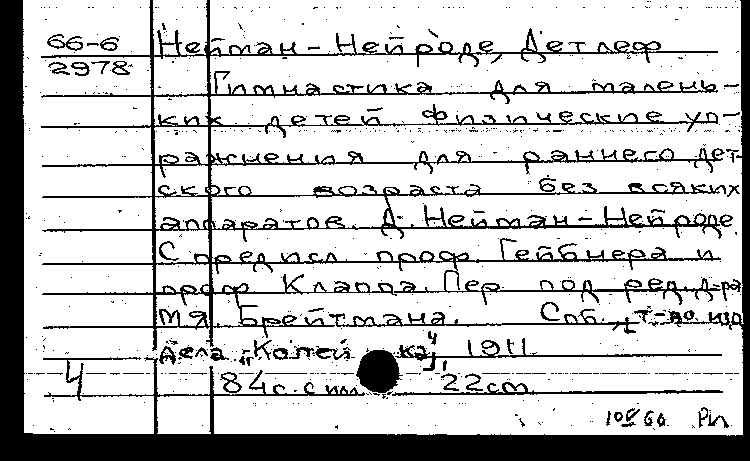 66-6 Нейман-Нейроде, Детлеф
2978
Гимнастика для малень-
ких детей. Физические уп-
ражнения для раннего дет-
ского возраста без всяких
аппаратов. Д. Нейман-Нейроде.
С предисл. проф. Гейбнера и
проф. Клаппа. Пер. под ред. д-ра
М.Я. Брейтмана. Спб., т-во изд.
дела „Копей ка", 1911.
4 84с. с илл. 22 см.